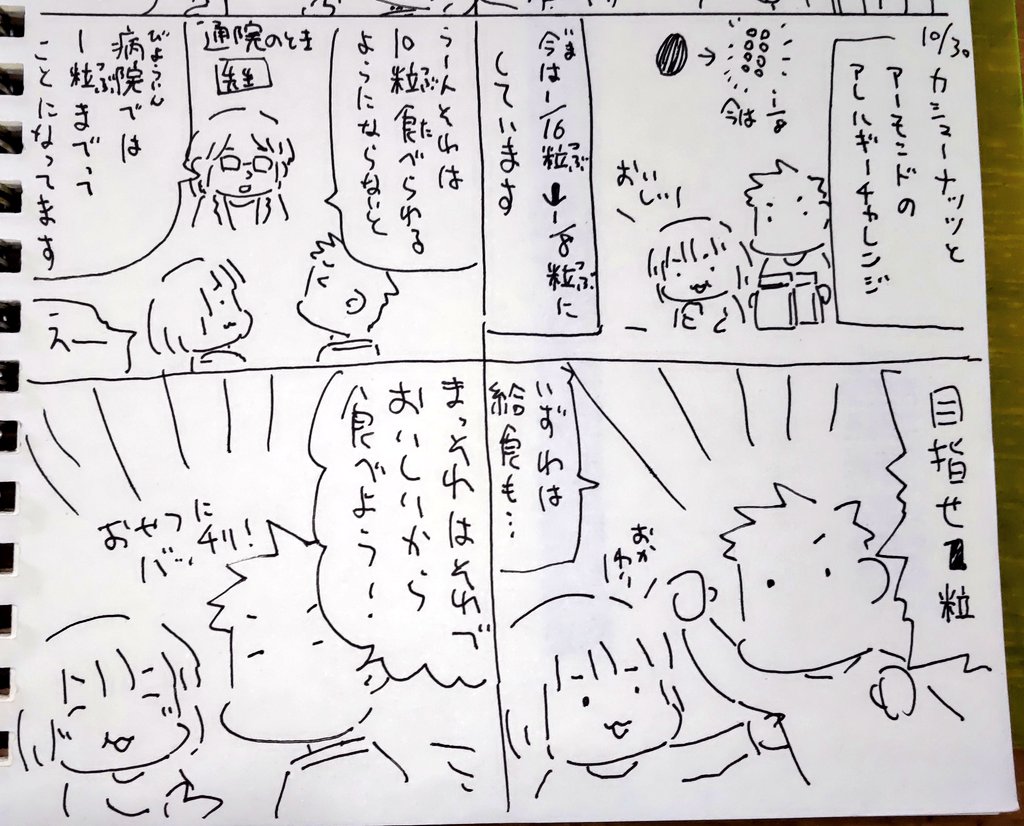 10/30 カシューナッツと
アーモンドの
アレルギーチャレンジ
→
今は 1/8
おいしい
今は1/16粒→1/8粒に
いま
つぶ
つぶ
しています
目指せ1粒
おかわり
いずれは
給食も…
うーんそれは
10粒食べられる
つぶ た
ようにならないと
通院のとき
先生
病院では
びょういん
1粒までって
つぶ
ことになってます
えー
まっそれはそれで
おいしいから
食べよう!
おやつに
バッチリ!